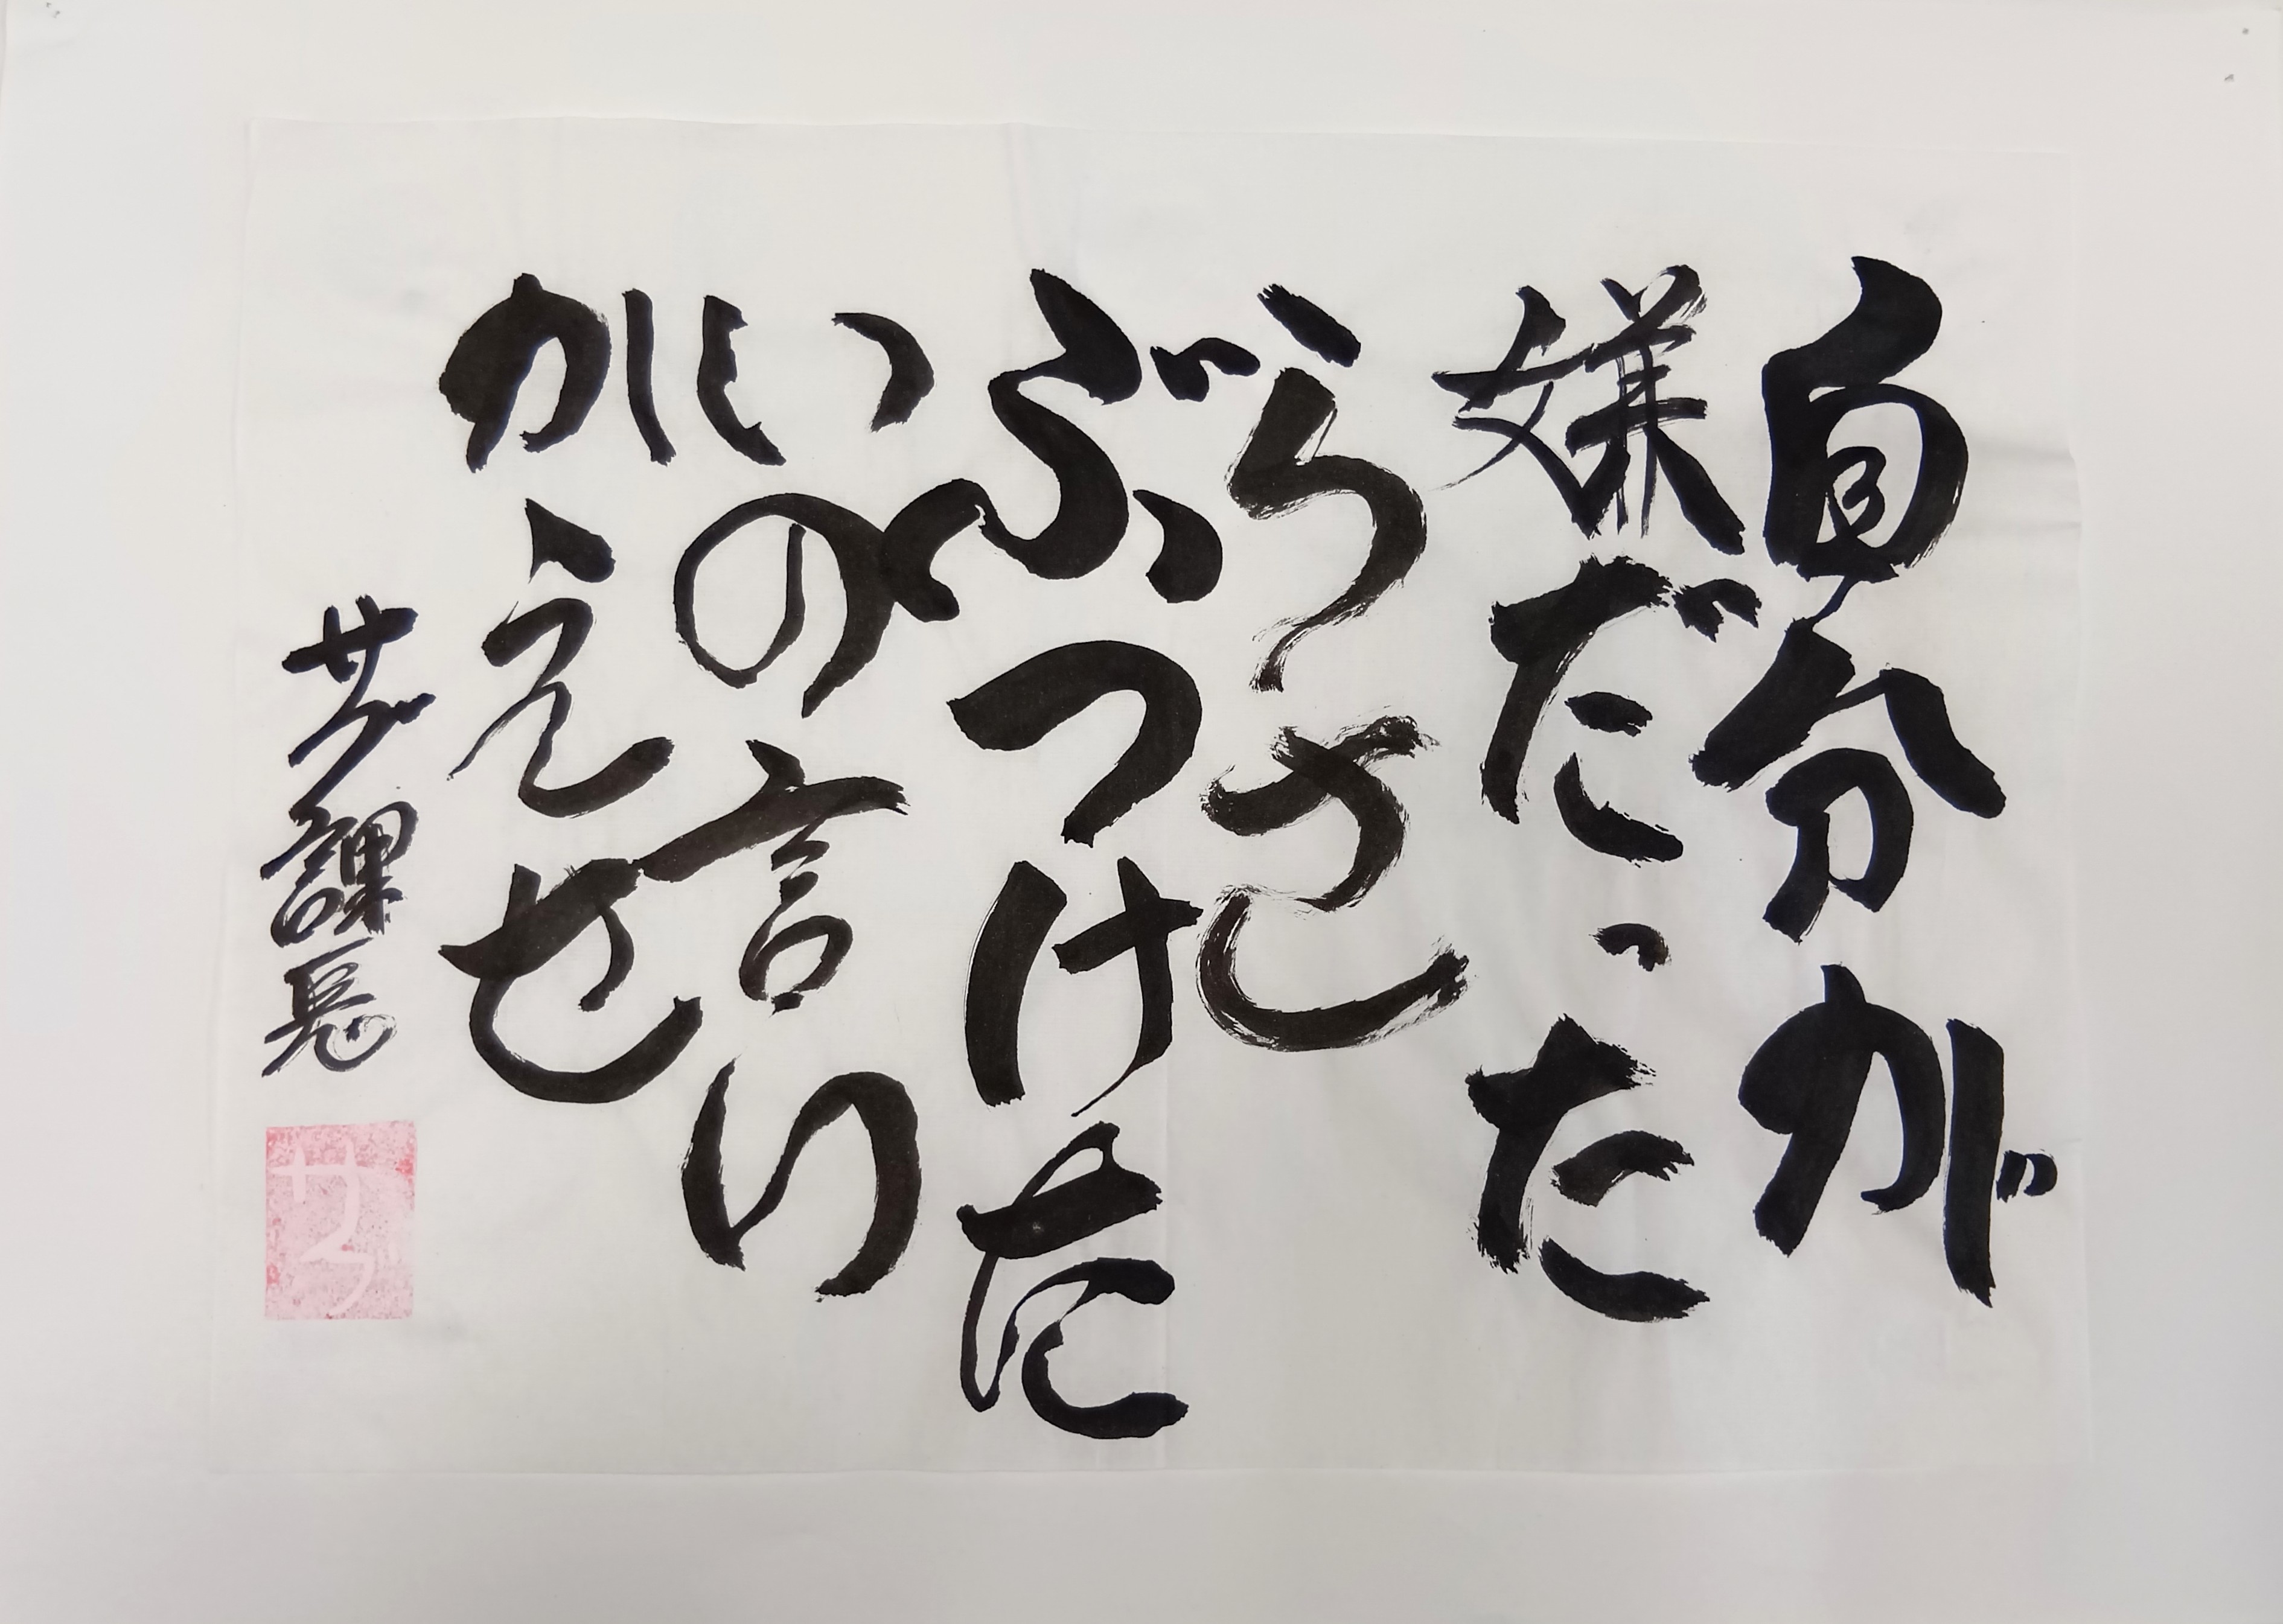 自分が
嫌だった
らさ
ぶつけた
いの言い
かえせ
サブ課長
サブ